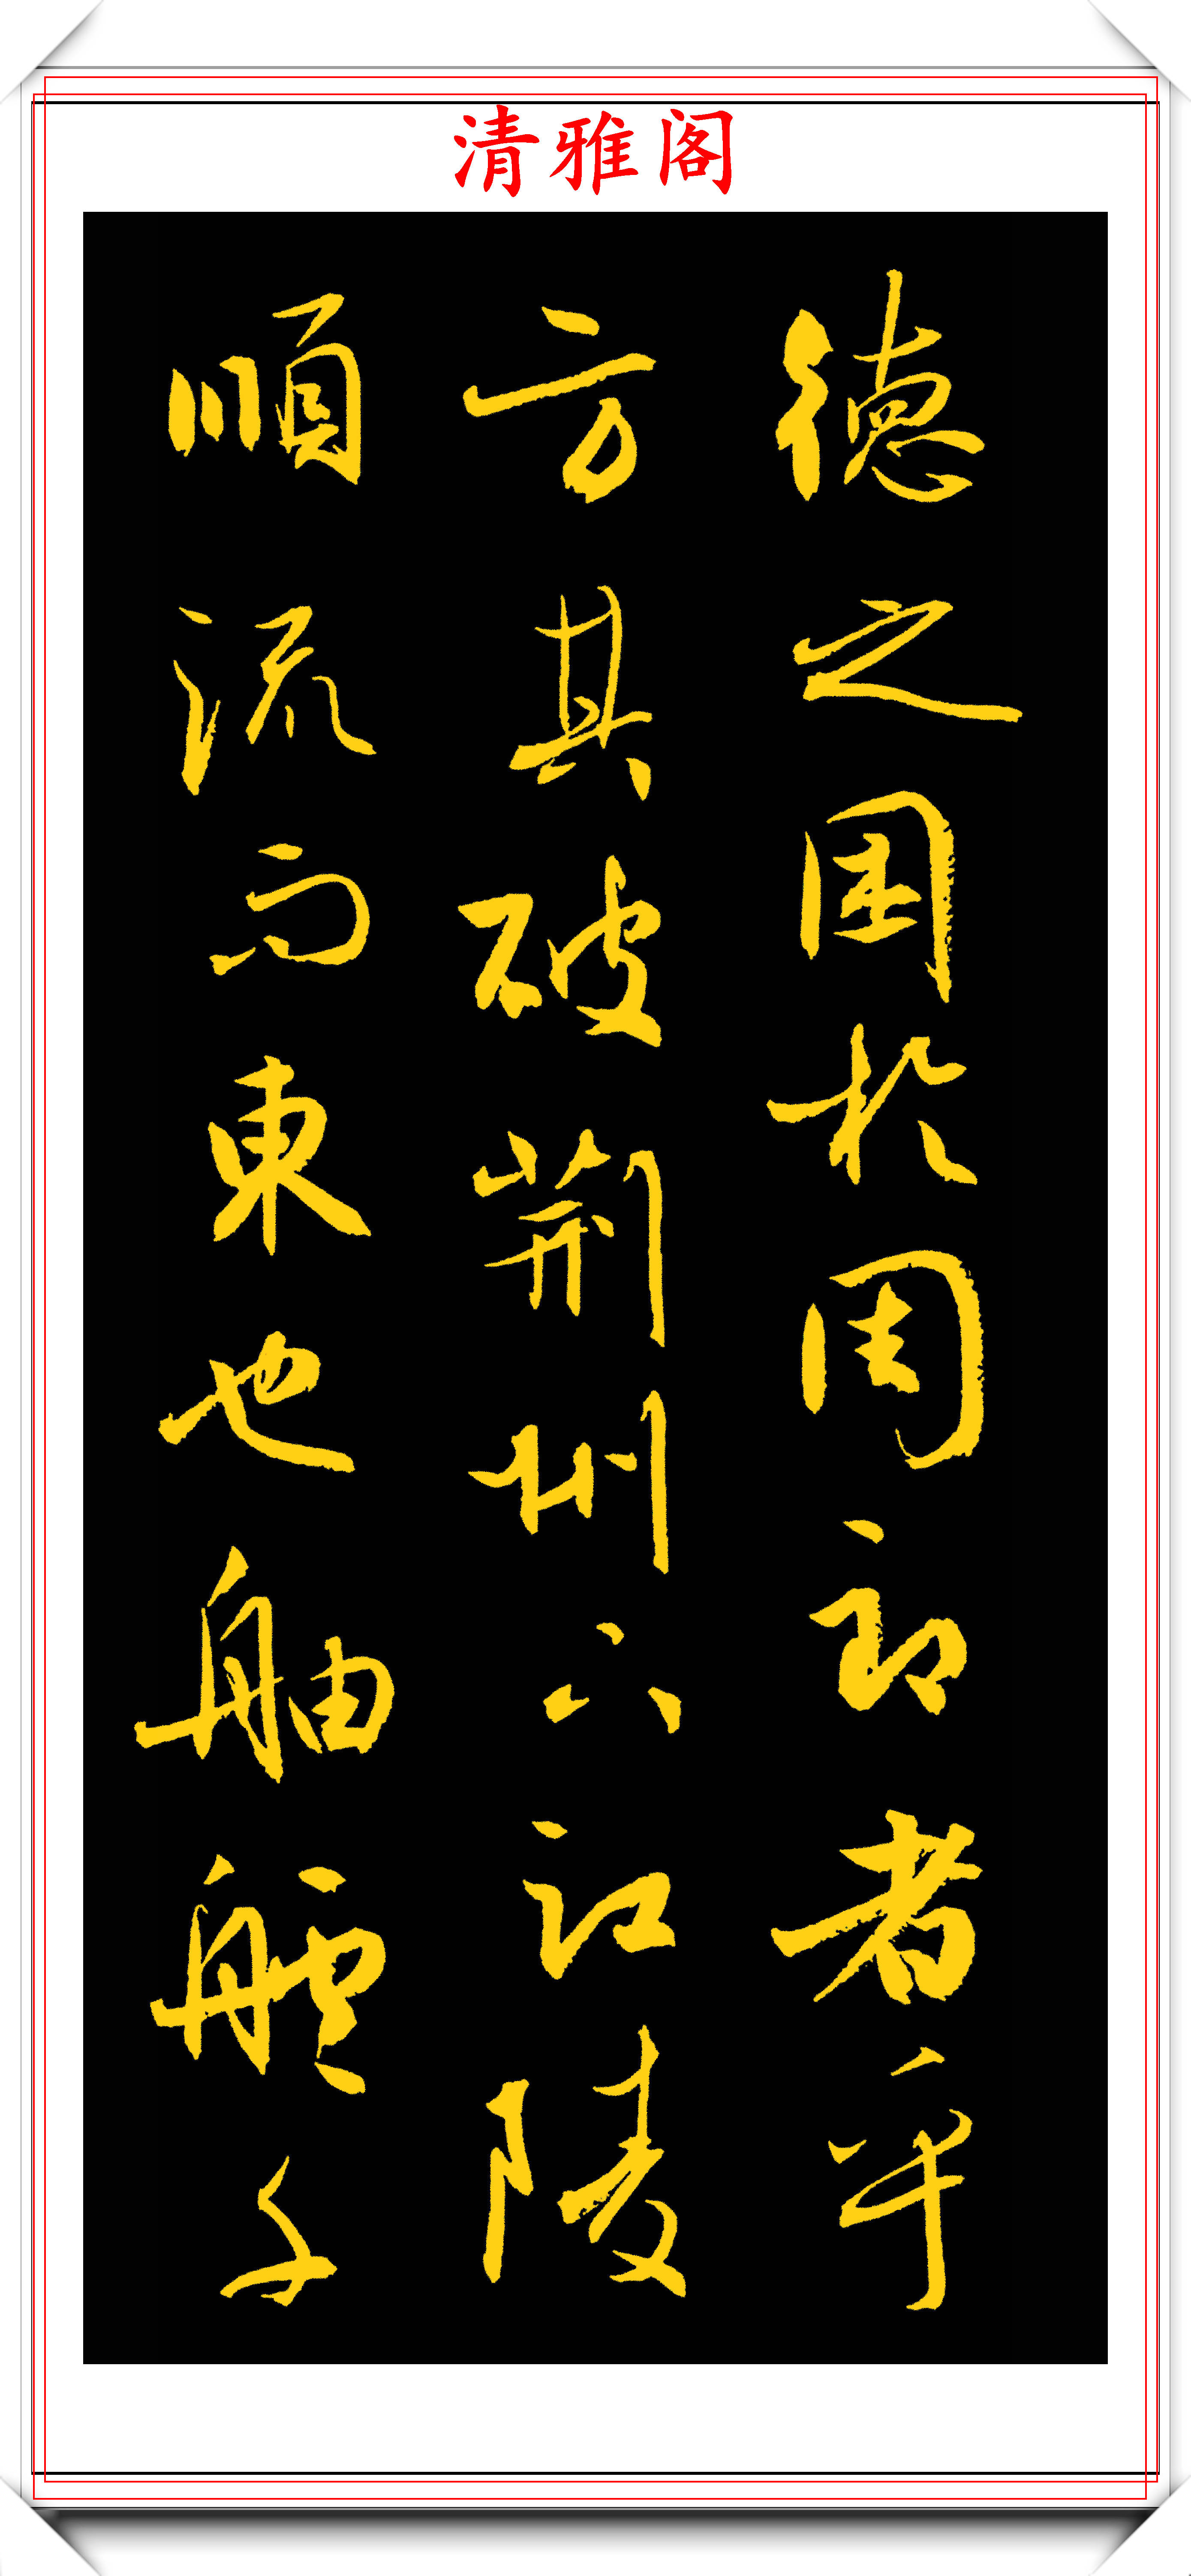 清雅阁
德之困於周郎者乎
方其破荆州下江陵
順流而東也舳艫千